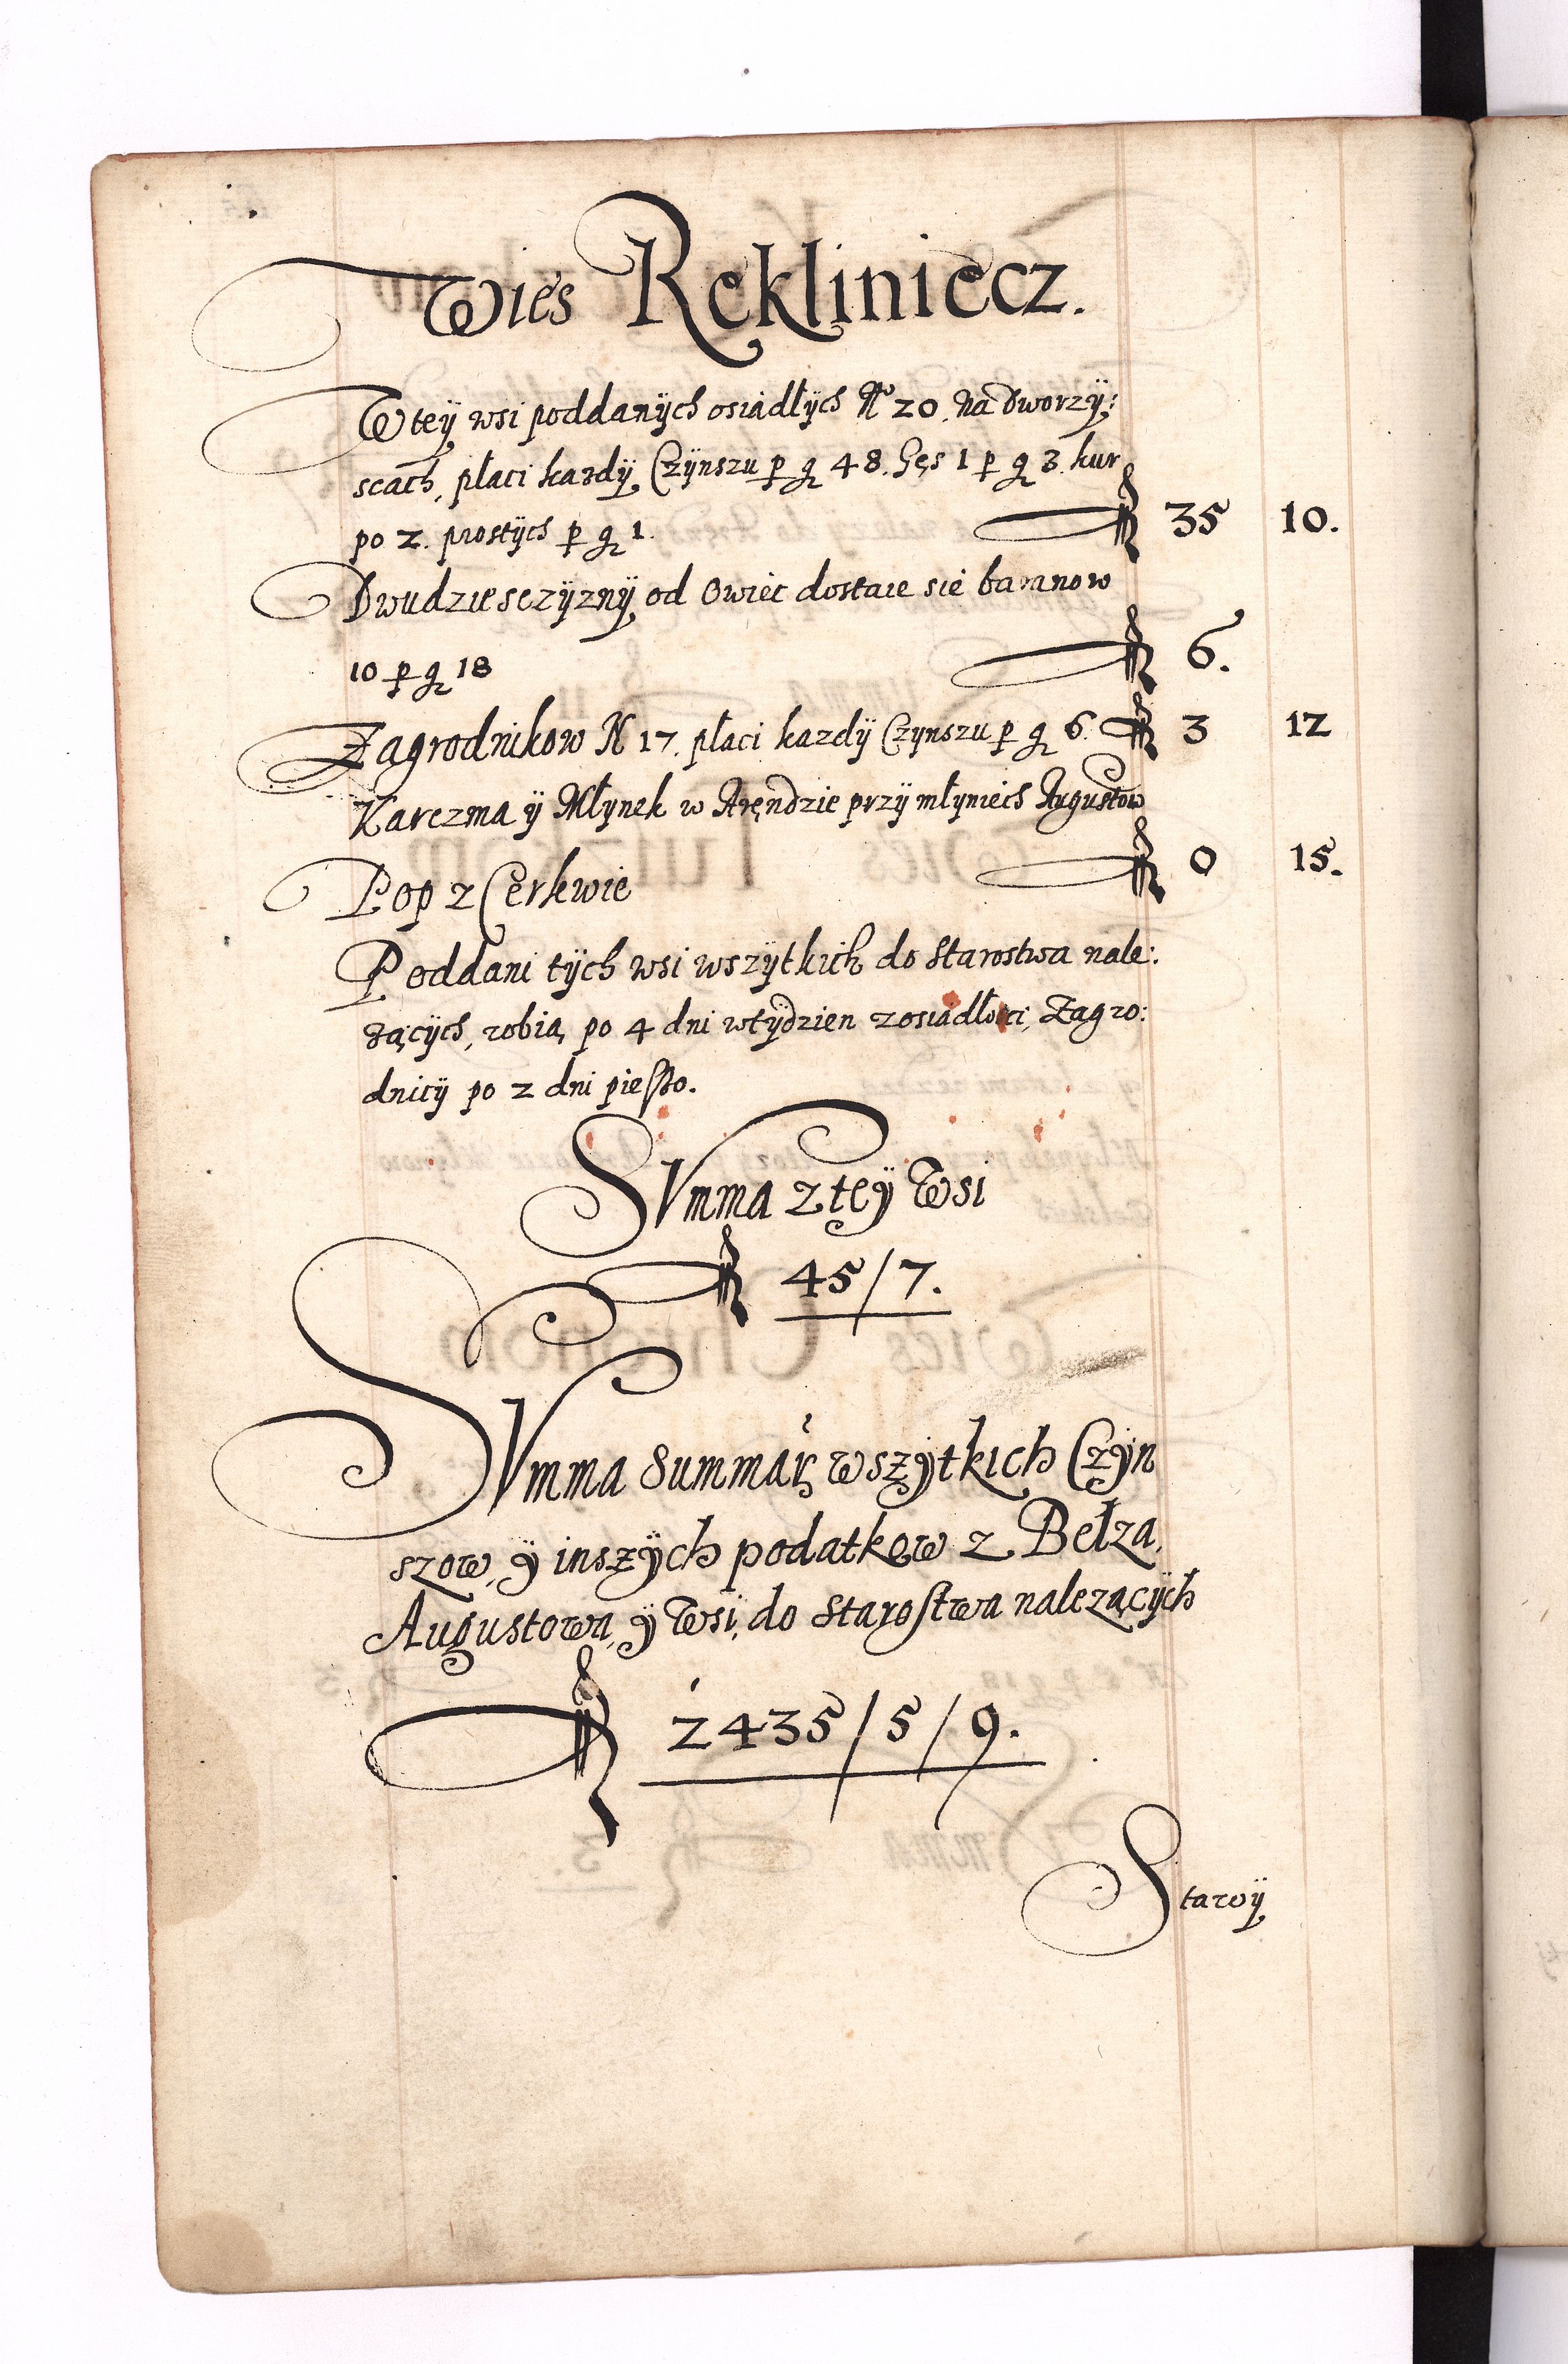 Wies Rekliniecz.
W teÿ wsi poddanÿch osiadłÿch N° 20. Na Dworzÿ:
scach, płaci kazdÿ Czÿnszu p gr 48. Gęs 1 p gr 3. kur
po 2. prostÿch p gr 1. 35 10.
Dwudziesczÿznÿ od Owiec dostaie sie baranow
10 p gr 18 6.
Zagrodnikow N 17. płaci kazdÿ Czynszu p gr 6. 3 12
Karczma ÿ Młynek w Aręndzie przÿ młyniech Augustow
Pop z Cerkwie 0 15.
Poddani tÿch wsi wszÿtkich do Starostwa nale:
żącÿch, robią po 4 dni w tÿdzien z osiadłości, Zagro:
dnicÿ po 2 dni pieszo.
Summa z teÿ Wsi
45/7.
Summa Summar wszÿtkich Czÿn
szow, ÿ inszÿch podatkow z Bełza,
Augustowa, ÿ Wsi, do Starostwa nalezącÿch
2435/5/9.
Starÿ